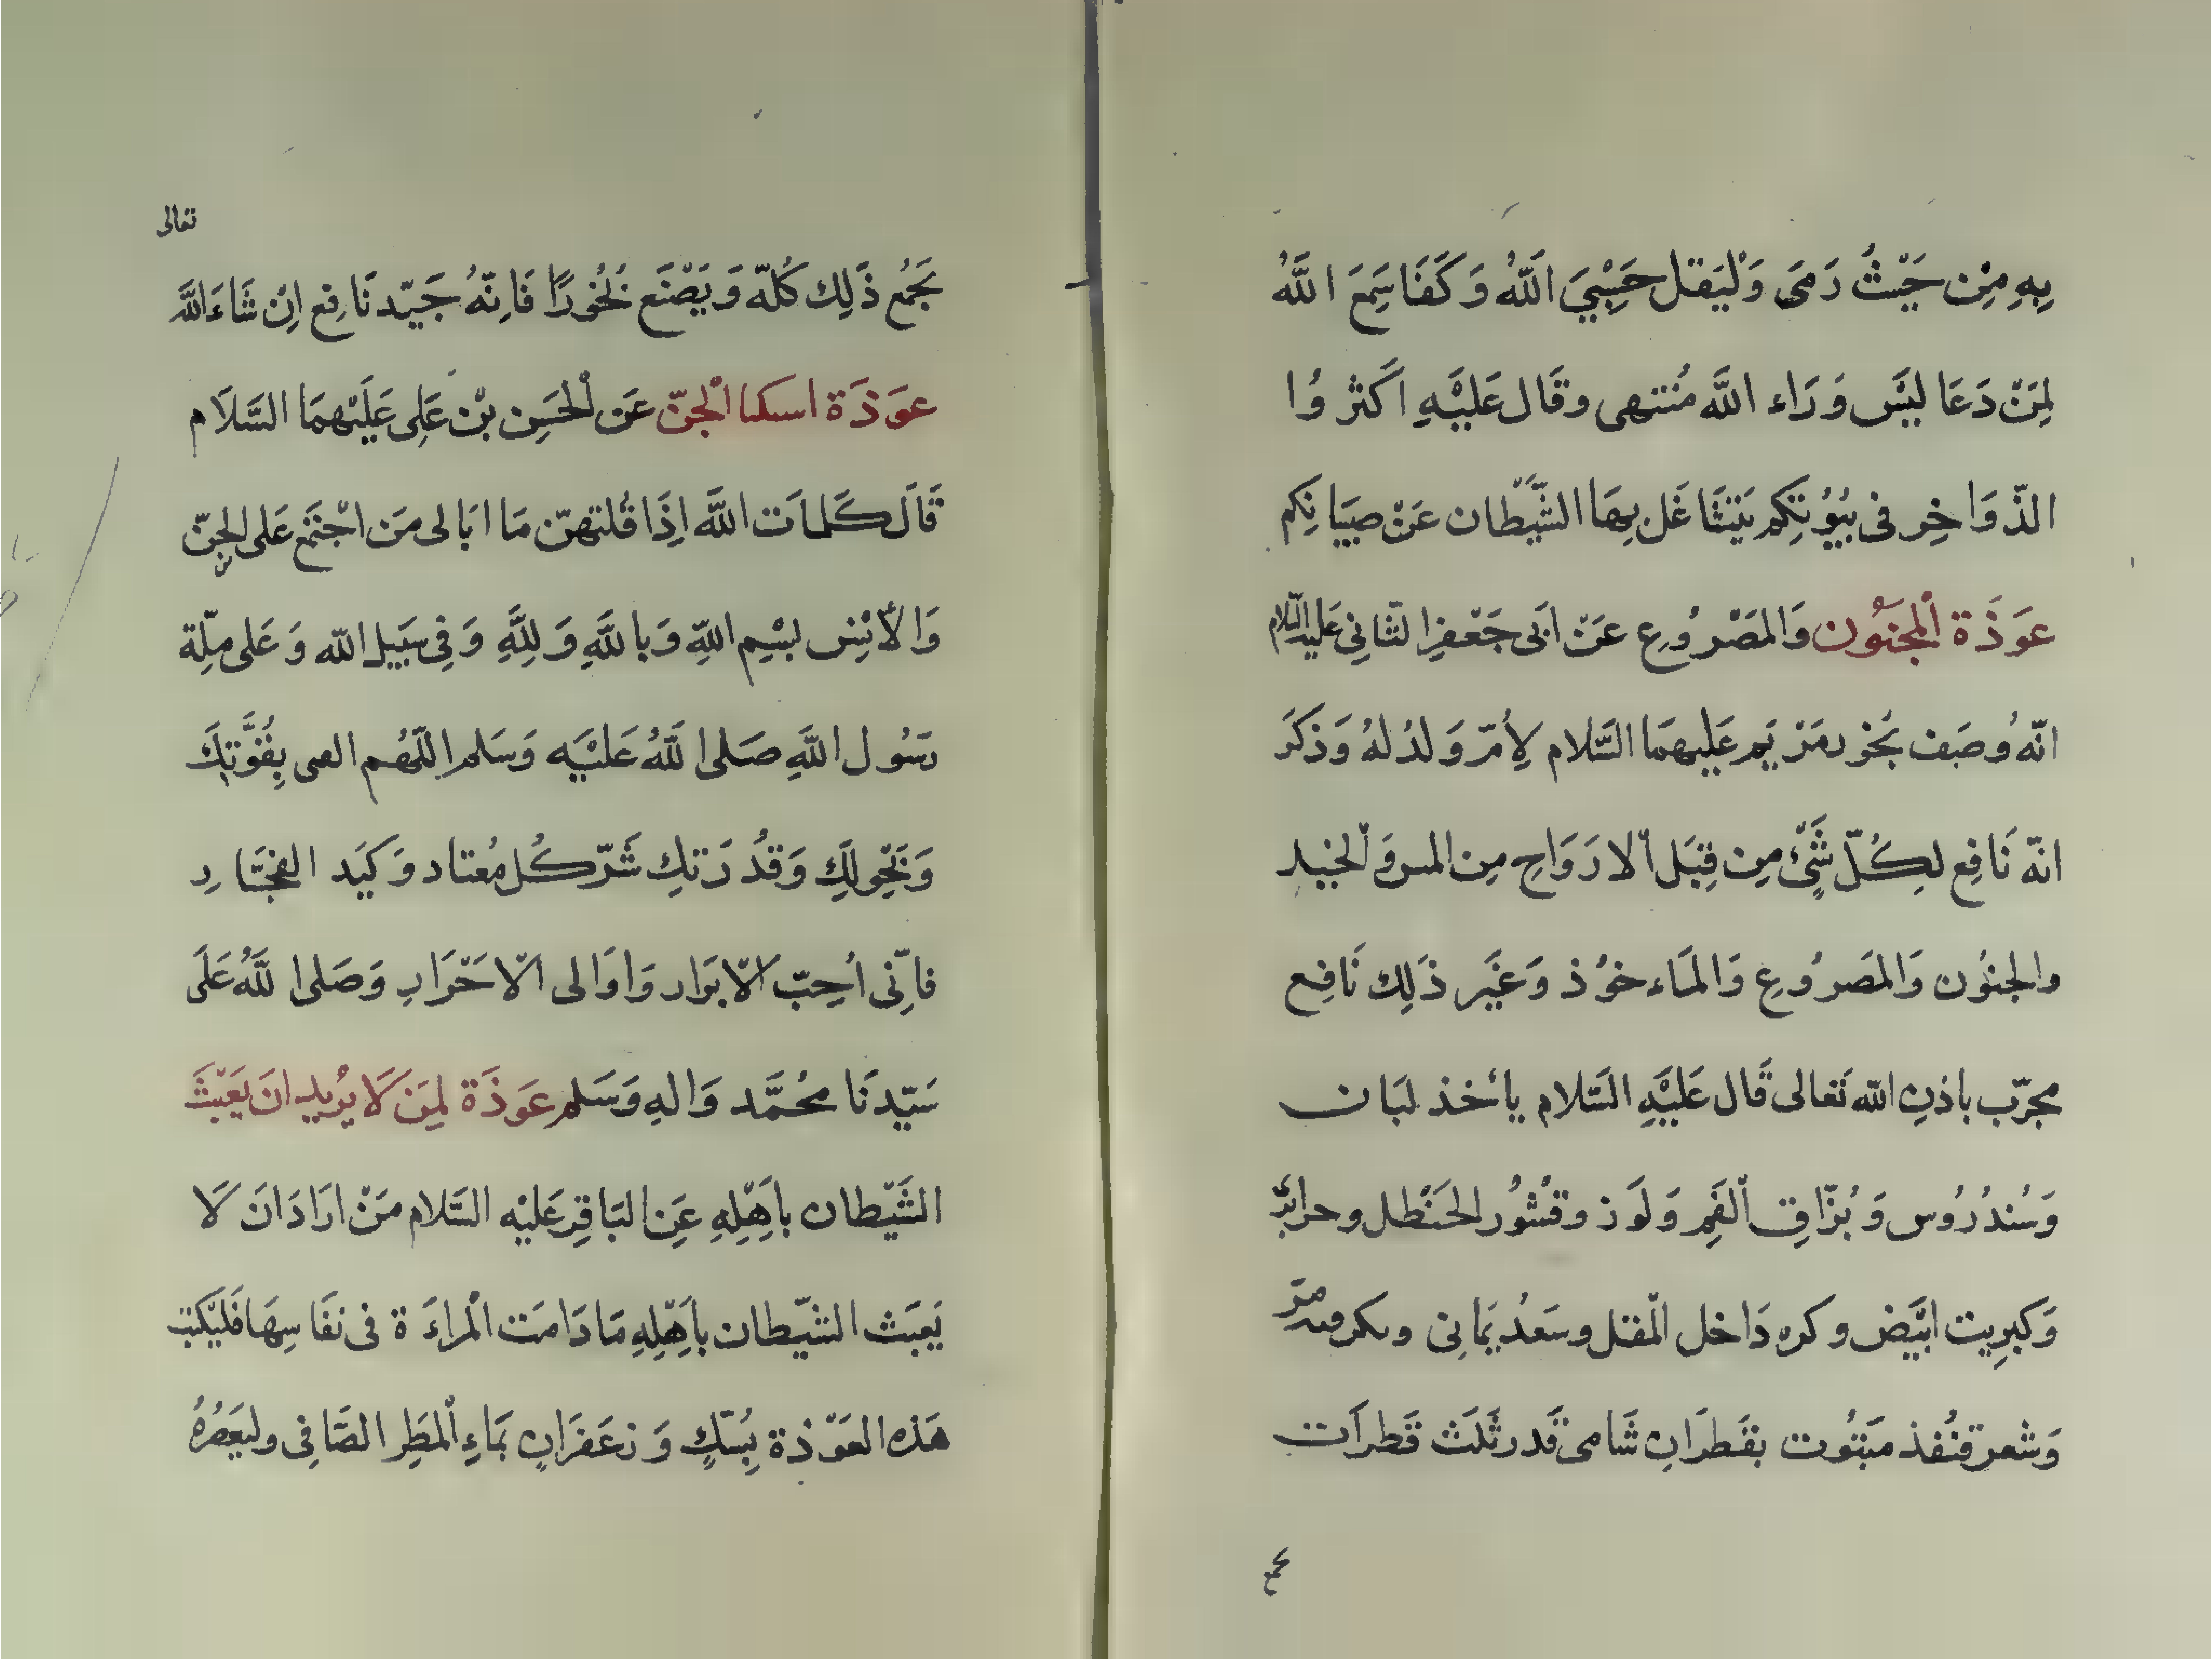 بِهِ مِنْ حَيْثُ رَمَى وَلْيَقل حَسْبِيَ اَللّٰهُ وَكَفَا سَمِعَ اللّٰهُ
لِمَنْ دَعَا لَيْسَ وَرَاء اللّٰه مُنتهى وقَال عَلَيْهِ اَكثرُوا
الدّوَاخِر فى بُيُوْتِكُم يَتَشَاغَل بِهَا الشَّيْطان عَنْ صِبْيَانِكُم
عَوَذَة اْلمجنُون وَالمَصْرُوع عَنْ ابَى جَعْفِر الثَّانِي عَليه السّلام
انّه وُصَف بخور مَرْيَم عَلِيهمَا السَّلام لِأمّ وَلدُ لهُ وَذَكَرَ
انّه نَافِع لِكُلّ شَئْ مِن قِبَل اْلارَوَاحِ مِن المس وَالخبيل
والجنُون وَالمَصرُوع وَالمَاءخوُذ وَغَيْر ذَلِك نَافِع
مجرّب باذنِ اللّٰه تَعَالى قَال عَلَيْهِ السَّلام يأخذ لبَان
وَسُندُرُوس وَبُزَّاق اْلفَمِ وَلَوز وقشُور الحَنْظل
وَكبرِيت ابْيَض وكره دَاخل الْمقل وسَعدُ يَمانِى مرّ
وَشعر قنُفذ مَبتُوت بقَطرَانِ شَامى قَدر ثَلَث قَطرَات
تعالى
يَجَمُع ذَلِك كُلّه وَيَصْنَع بُخُورًا فَانّهُ جَيّد نَافِع اِنْ شَاءَ اللَّه
عوَذَة الْجنّ عَن اْلحَسِن بْن عَلِى عَلَيْهمَا السَّلَام
قَالَ كَلماَت اللَّه اِذَا قُلتهنّ مَا ابَالى مَن اجْتَمَع عَلى الجِنّ
وَالأنْسِ بسْمِ اللّٰهِ وَبِاللَّهِ وَلِلَّهِ وَفِى سَبَيل اللّٰه وَعَلى مِلّة
رسَوُل اللَّهِ صَلى اللّٰهُ عَلَيْه وَسَلم اللّهُم بِقُوَّتِكَ
وَبَحِولَكِ وَقدُرَتكِ شَرّ كُل مُعتاد وَكَيَد الفجَّارِ
فاِنّى اُحِبّ اْلابرَار وَاوَالى اْلاحَرَارِ وَصَلى اللّٰهُ عَلَى
سَيّدنَا مُحَمَّد وَالهِ وَسَلم عَوَذَة لِمَن لَا يُرِيد انَ يَعَبْثَ
الشَيّطان باَهْلِهِ عَنِ البَاقِر عَليْه السَّلام مَنْ ارَادَ انَ لَا
يَعبَث الشّيطان باَهْلِهِ مَا دَامَت اْلمراءَة فى نفَاسِهَا فَليَكتب
هَذه العَوّذة بِمسْكٍ وَزعَفَرانٍ بمَاءِ اْلمطَرِ الصَّافِى وليَعَصُرهُ